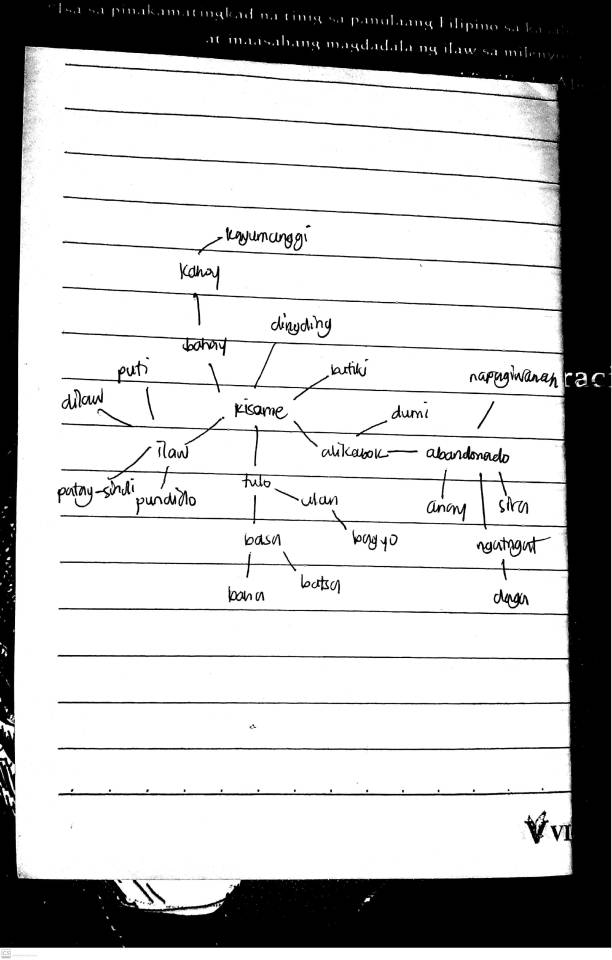 "Isa sa pinakamatingkad na tinig sa panulaang Filipino sa
at maasahang magdadala ng ilaw sa
kayumanggi
kahoy
dingding
bahay
puti
butiki
napagiwanan
raci
dilaw
kisame
dumi
ilaw
alikabok
abandonado
patay-sindi
pundido
tulo
ulan
anay
sira
basa
bagyo
ngatngat
baha
batsa
daga
VI
CS